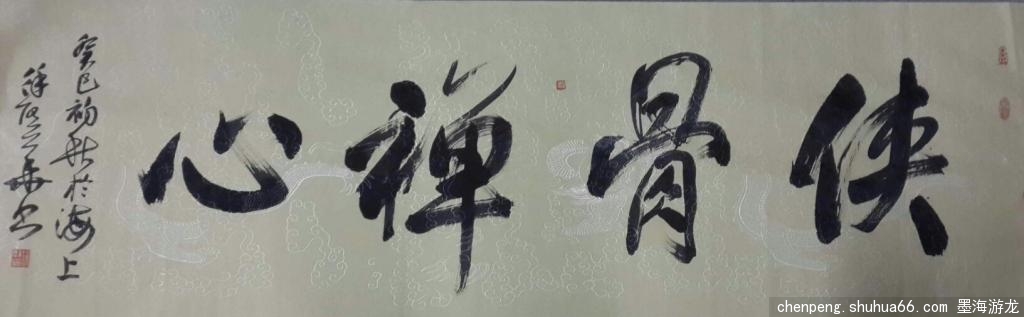 侠骨禅心
癸巳初秋於海上
书
chenpeng.shuhua66.com 墨海游龙